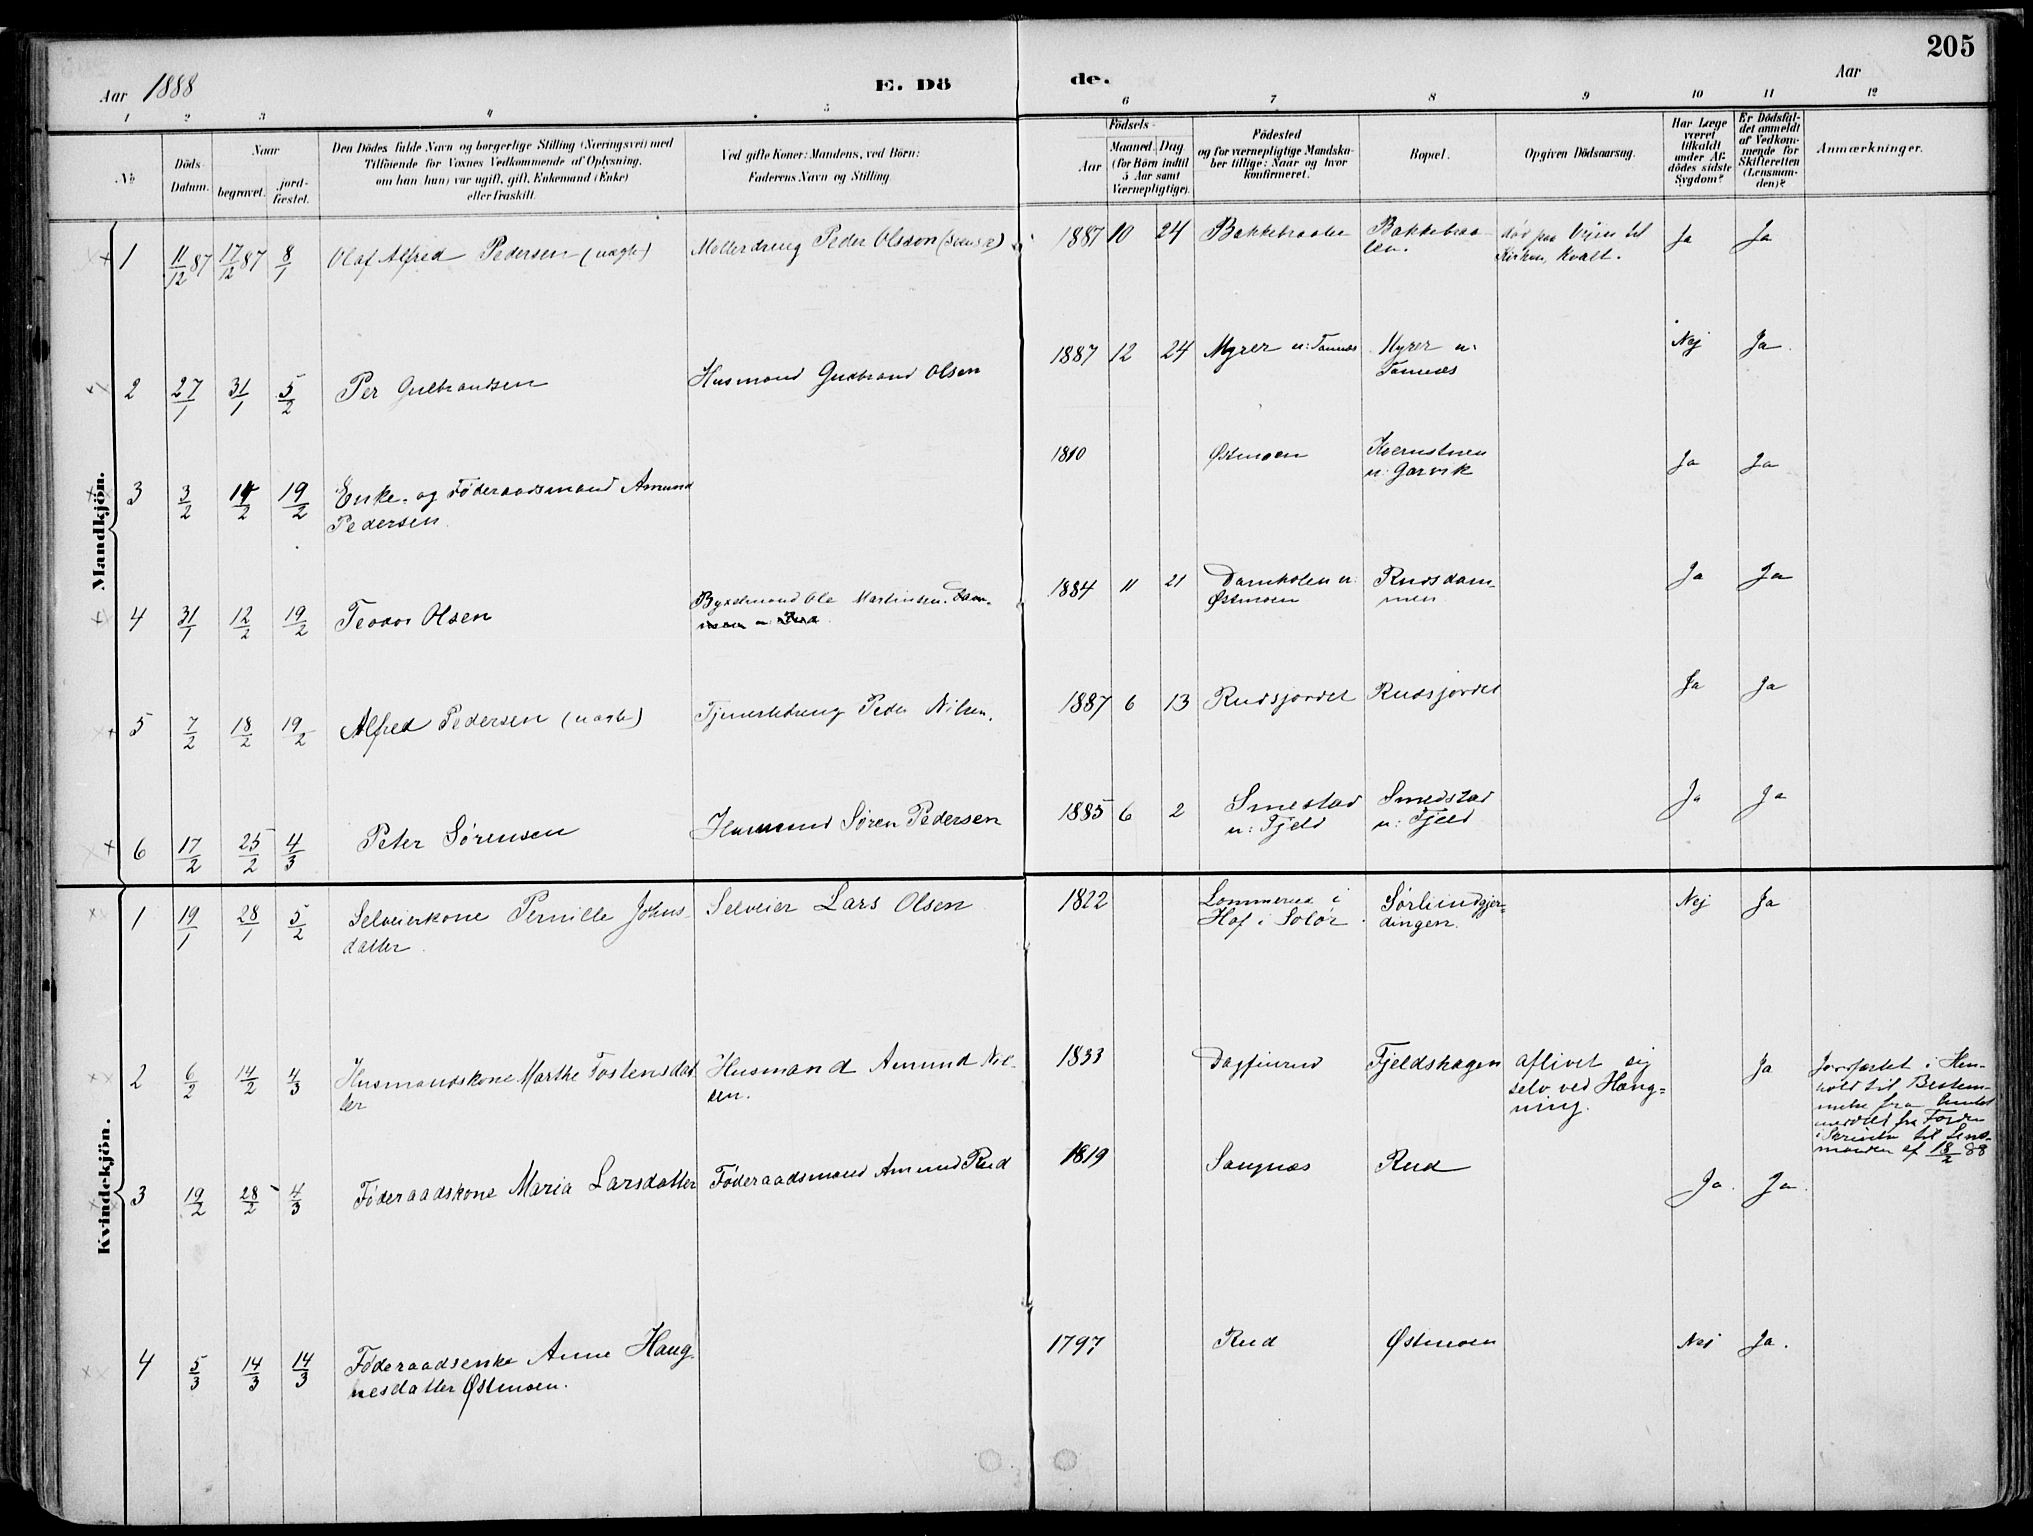 205
Aar 1888
E. Dö
de.
Aar
1 2 3 4 5 6 7 8 9 10 11 12
No
Döds-
Datum.
Naar
begravet.
jord-
fæstet.
Den Dödes fulde Navn og borgerlige Stilling (Næringsvei) med
Tilföiende for Voxnes Vedkommende af Oplysning,
om han (hun) var ugift, gift, Enkemand (Enke)
eller fraskilt.
Ved gifte Koner: Mandens, ved Börn:
Faderens Navn og Stilling.
Födsels-
Aar
Maaned. Dag.
(for Börn indtil
5 Aar samt
Værnepligtige).
Födested
og for værnepligtige Mandska-
ber tillige: Naar og hvor
konfirmeret.
Bopæl.
Opgiven Dödsaarsag.
Har Læge
været
tilkaldt
under Af-
dödes sidste
Sygdom?
Er Dödsfal-
det anmeldt
af Vedkom-
mende for
Skifteretten
(Lensman-
den)?
Anmærkninger.
Mandkjön.
1 11/12 87 17/12 87 8/1 Olaf Alfred Pedersen (uægte) Møllerdreng Peder Olsson 1887 10 24 Bakkebraaten Bakkebraa-
ten. død paa Vejen til
Kirken, kvalt. Ja Ja
2 27/1 31/1 5/2 Per Gulbrandsen Husmand Gudbrand Olsen 1887 12 24 Myrer u: Tannæs Myrer u:
Tannæs Nej Ja
3 3/2 14/2 19/2 Enke- og Føderaadsmand Amund
Pedersen 1810 Østmoen
u: Garvik Ja Ja
4 31/1 12/2 19/2 Teodor Olsen Bygselmand Ole Martinsen
1884 11 21 Damholen u:
Østmoen Rudsdam-
men Ja Ja
5 7/2 18/2 19/2 Alfred Pedersen (uægte) Tjenestedreng Peder Nilsen. 1887 6 13 Rudsjordet Rudsjordet Ja Ja
6 17/2 25/2 4/3 Peter Sørensen Husmand Søren Pedersen 1885 6 2 Smestad
u: Fjeld Smedstad
u: Fjeld Ja Ja
Kvindekjön.
1 19/1 28/1 5/2 Selveierkone Pernille Johns-
datter. Selveier Lars Olsen 1822 Lommerud i
Hof i Solør. Sørlundgjer-
dingen. Nej Ja
2 6/2 14/2 4/3 Husmandskone Marthe Tostensdat-
ter Husmand Amund Nil-
sen. 1833 Dagfinrud Fjeldshagen aflivet sig
selv ved Hæng-
ning. Ja Jordfæstet i Hen-
hold til Bestem-
melse fra Amtet
meddelt fra Fogden
i Skrivelse til Lens-
manden af 18/2 88
3 19/2 28/2 4/3 Føderaadskone Maria Larsdatter Føderaadsmand Amund Rud 1819 Saugnæs Rud Ja Ja.
4 5/3 14/3 14/3 Føderaadsenke Anne Haag-
nesdatter Østmoen. 1797 Rud Østmoen Nej Ja.